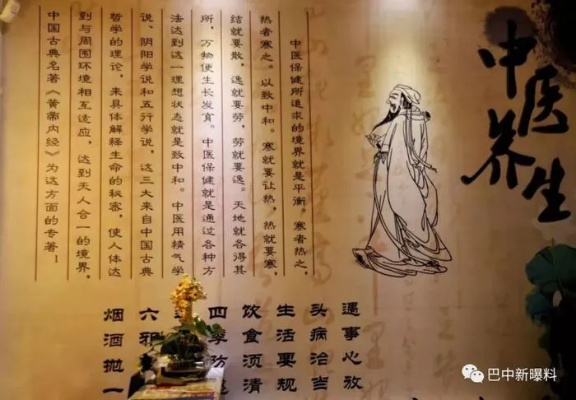 中医养生
中医保健所追求的境界就是平衡。寒者热之,
热者寒之。以致中和。寒就要让热,热就要寒
结就要散,逸就要劳,劳就要逸。天地就各得其
所,万物便生长发育。中医保健就是通过各种方
法达到这一理想状态就是致中和。中医用精气学
说、阴阳学说和五行学说,这三大来自中国古典
哲学的理论,来具体解释生命的秘密,使人体达
到与周围环境相互适应,达到天人合一的境界。
中国古典名著《黄帝内经》为这方面的专著!
遇事心放
头病治当
生活要规
饮食须清
四季防
六邪
烟酒抛一
巴中新曝料